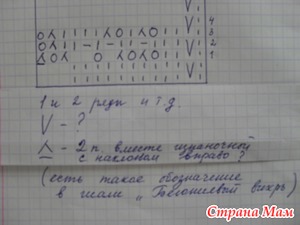 4
3
2
1
1 и 2 ряды и т.д.
V - ?
2 п. вместе изнаночной
с наклоном вправо ?
(есть такое обозначение
в шали „ вихрь)
Страна Мам